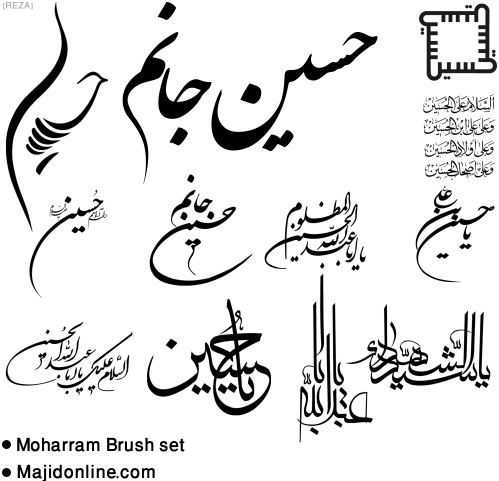 [REZA]
حسین جانم
حسین
السلام علی الحسین
وعلی علی ابن الحسین
وعلی اولاد الحسین
وعلی اصحاب الحسین
حسین
حسین جانم
یا اباعبدالله الحسین المظلوم
یا حسین
السلام علیک یا اباعبدالله الحسین
یا حسین
یا اباعبدالله
یا سیدالشهداء
Moharram Brush set
Majidonline.com